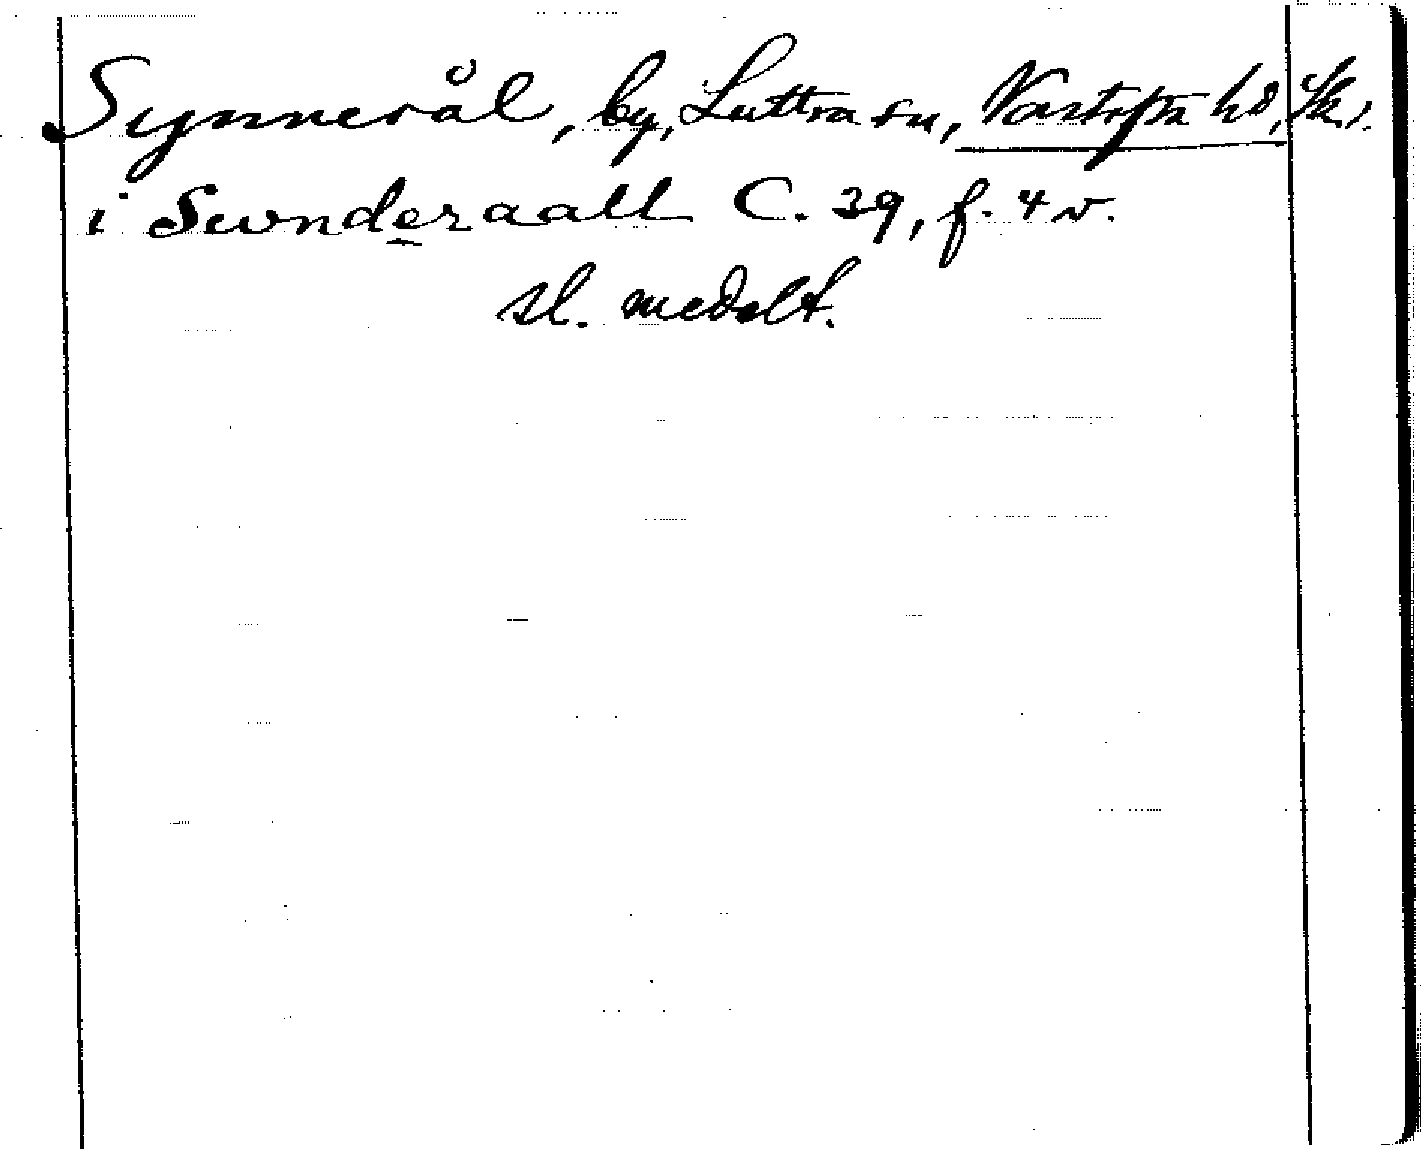 Synnerål, by, Luttra sn, Vartofta hd, Sk.l.
i Swnderaall C. 39, f. 4 v.
sl. medelt.